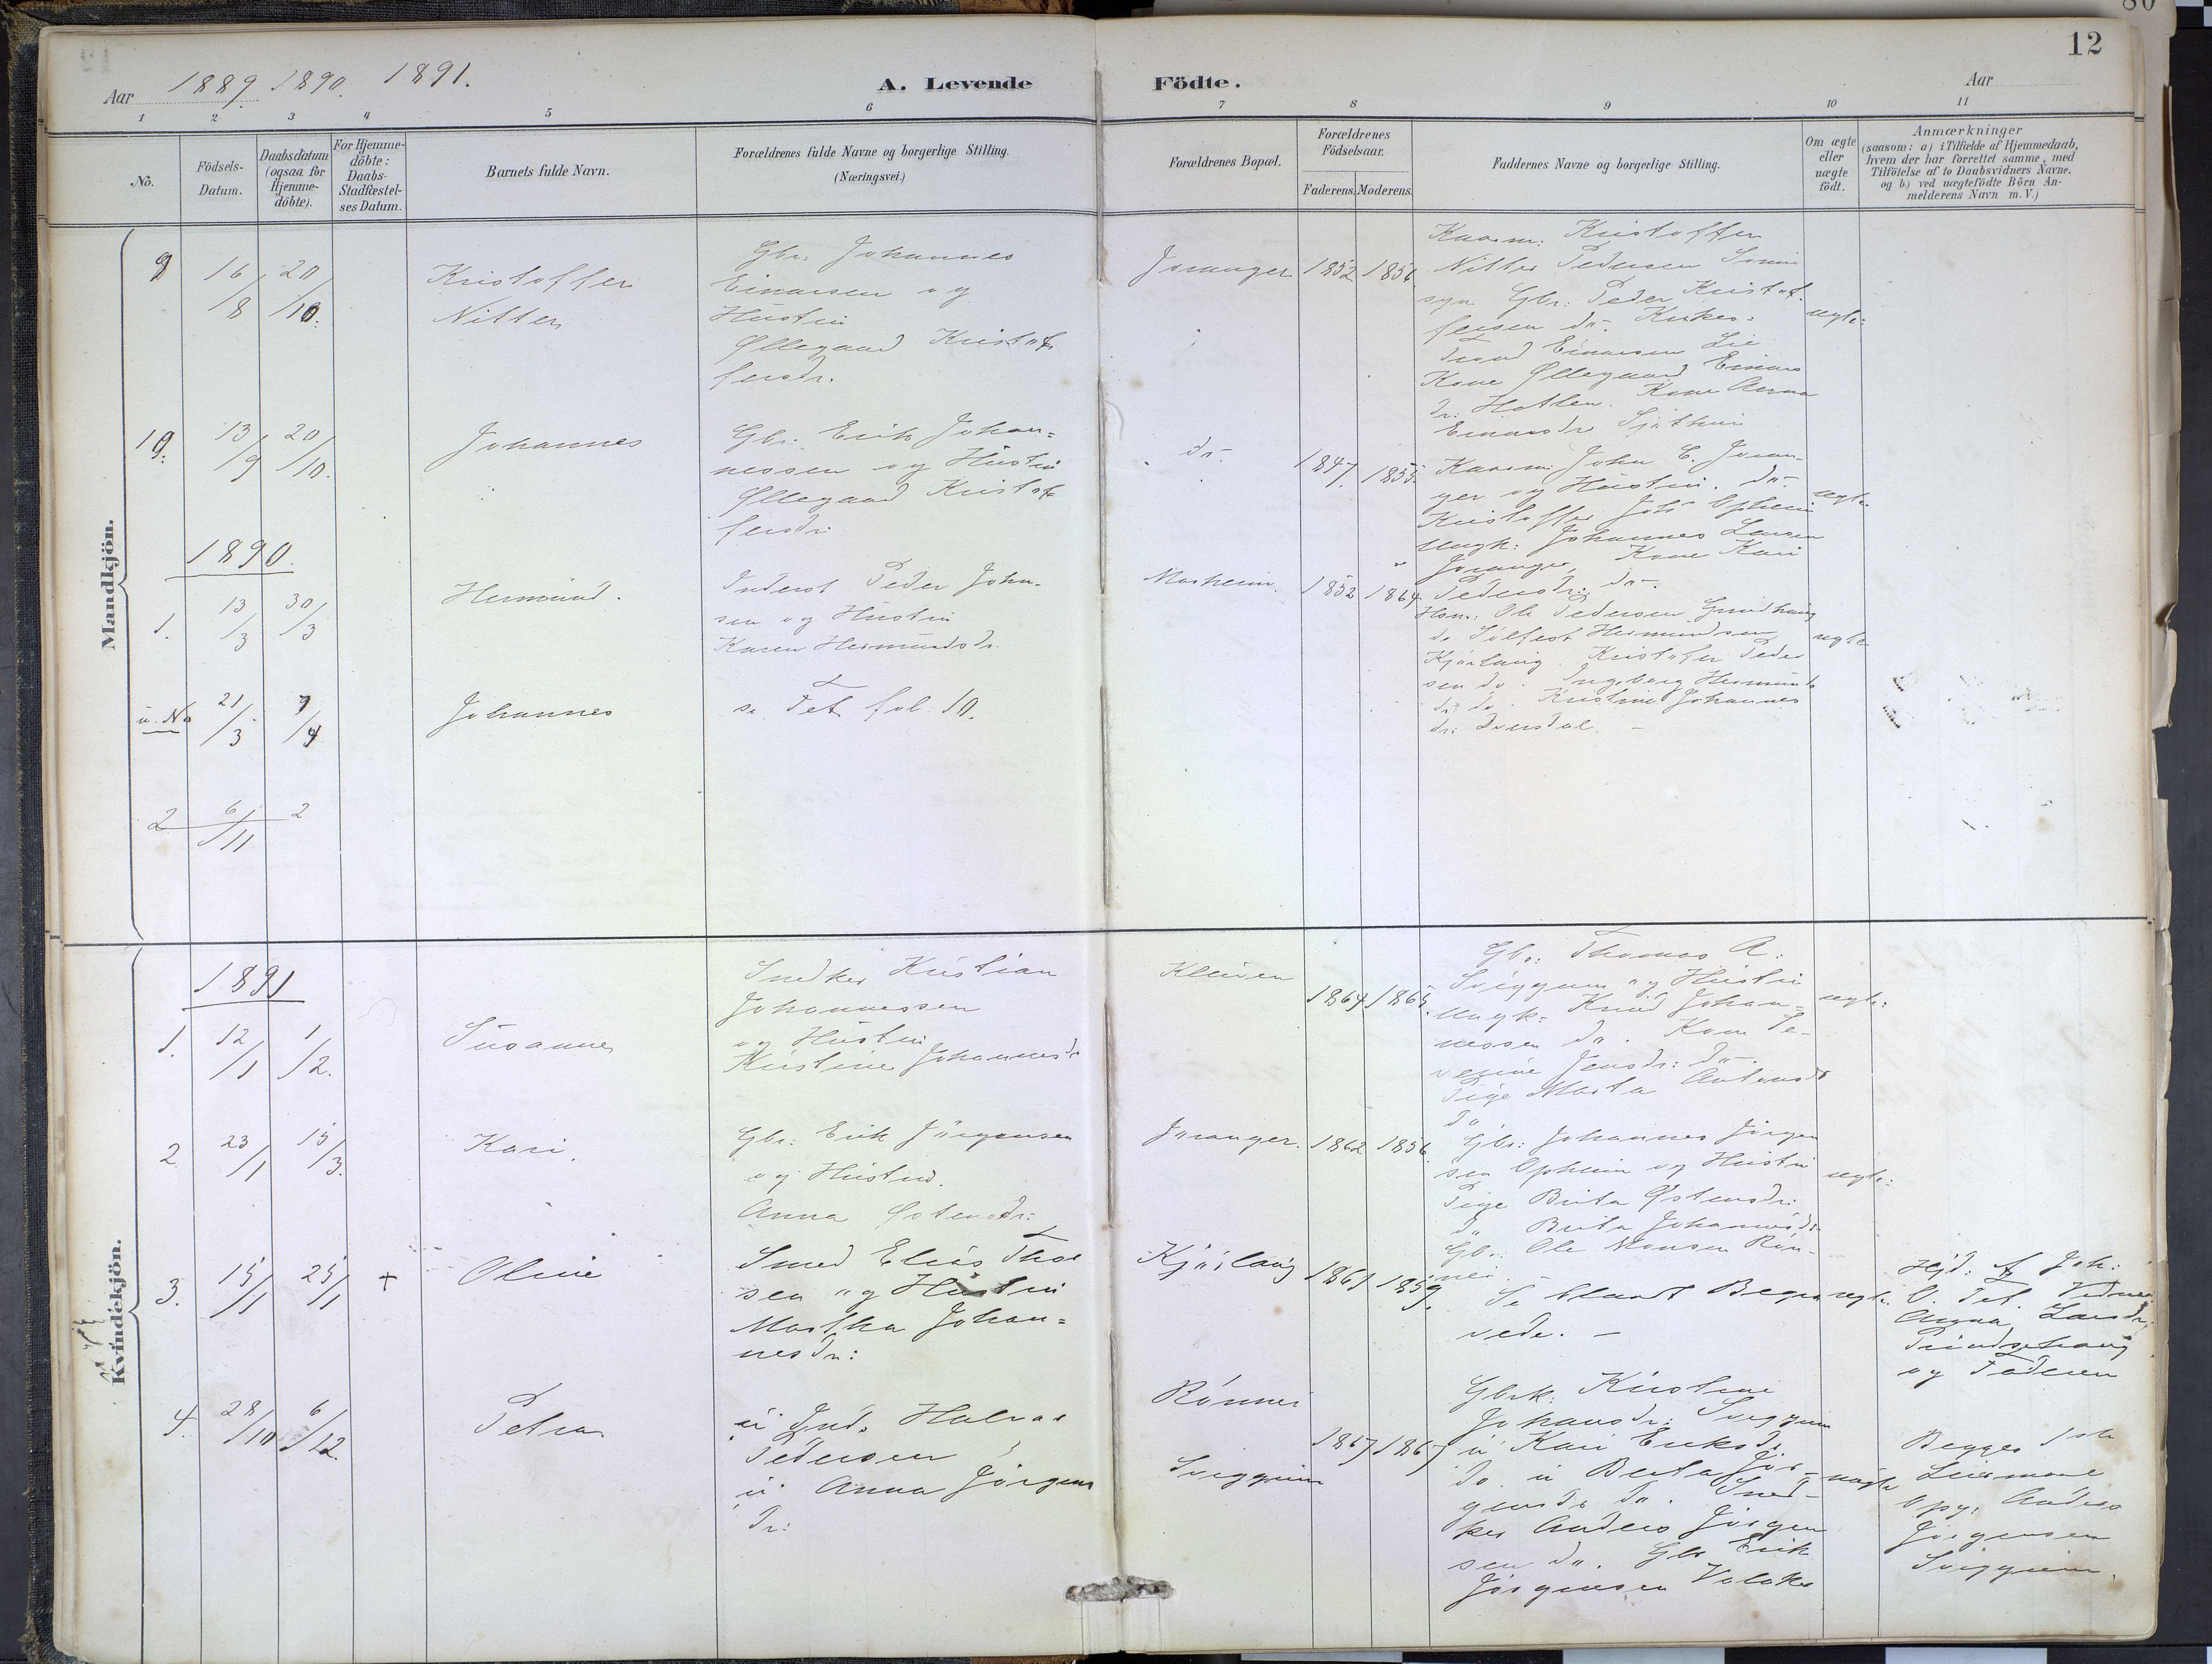 80
12
Aar 1889. 1890. 1891.
A. Levende Födte.
Aar
1 2 3 4 5 6 7 8 9 10 11
No.
Födsels-
Datum.
Daabsdatum
(ogsaa for
Hjemme-
döbte).
For Hjemme-
döbte:
Daabs-
Stadfæstel-
ses Datum.
Barnets fulde Navn.
Forældrenes fulde Navne og borgerlige Stilling.
(Næringsvei.)
Forældrenes Bopæl.
Forældrenes
Födselsaar.
Faderens. Moderens.
Faddernes Navne og borgerlige Stilling.
Om ægte
eller
uægte
födt.
Anmærkninger
(saasom: a) i Tilfælde af Hjemmedaab,
hvem der har forrettet samme, med
Tilföielse af to Daabsvidners Navne.
og b) ved uægtefödte Börn An-
melderens Navn m. V.)
Mandkjön.
9 16/8 20/10.
Kristoffer
Nitter
Gbr: Johannes
Einarsen og
Hustru
Øllegaard Kristof
fersdr.
Joranger 1852 1856.
Kaarm: Kristoffer
Nitter Pedersen
Gbr: Peder Kristof-
fersen do.
Einarsen Lie
Kone Øllegaard Einars
dr: Hatlen. Kone Anna
Einarsdr
ægte:
10. 13/9 20/10.
Johannes
Gbr: Erik Johan=
nessen og Hustru
Øllegaard Kristof
fersdr:
do. 1847 1855.
Kaarm: John E. Joran
ger og Hustru. do.
Kristoffer Joh: Opheim
Ungk: Johannes Larsen
Joranger, Kone Kari
Pedersdr: do.
ægte.
1890.
1. 13/3 30/3
Hermund.
Inderst Peder John-
sen og Hustru
Karen Hermundsdr.
Marheim. 1852 1864.
Hsm: Ole Pedersen
do Sølfest Hermundsen
Kjørlaug. Kristofer Peder
sen do. Ingeborg Hermunds
dr: do. Kristine Johannes
dr:
ægte
u. No 21/3 7/4
Johannes
se Tet. fol 10.
2 6/11 2
Kvindekjön.
1891
1. 12/1 1/2.
Susanne
Snedker Kristian
Johannessen
og Hustru
Kirstine Johannesdr
Kleiven
1864 1865.
Gbr: Thomas A.
Sveggum og Hustru
Ungk: Knud Johan-
nessen do. Kone Se-
verine Jensdr: do.
Pige Marta Antonsdr
do
ægte:
2. 23/1 15/3.
Kari.
Gbr: Erik Jörgensen
og Hustru.
Anna Østensdr:
Joranger. 1862 1856.
Gbr: Johannes Jörgen
sen Opheim og Hustru
Pige Brita Østensdr:
do Brita Johannesdr
Gbr. Ole Monsen Røn-
nei.
ægte:
3. 15/1 25/1 +
Oline
Smed Elias Thor
sen og Hustru
Martha Johan=
nesdr:
Kjørlaug 1861 1859.
Se blandt Begra
vede. –
ægte.
Hjd: af Joh:
O. Tet. Vidner
Anna Larsdr,
og Faderen
4. 28/10 6/12.
Petra
u. Gud. Halvor
Pedersen
u. Anna Jörgens
dr:
Rönnei
Svegguim
1867 1867
Gbrk: Kirstine
Johansdr: Sveggum
u Kari Eriksdr
do u Berta Jör-
gensdr do. Sned-
ker Anders Jörgen
sen do. Gbr Erik
Jörgensen
uægte
Begges 1ste
Leiermaal
Opg: Anders
Jörgensen
Svegguim.